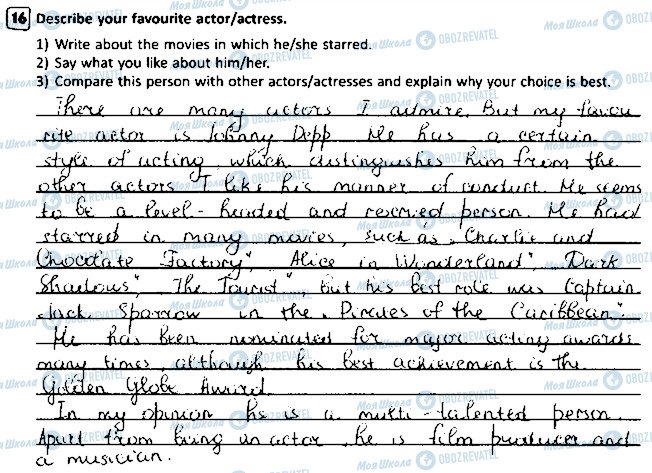 16 Describe your favourite actor/actress.
1) Write about the movies in which he/she starred.
2) Say what you like about him/her.
3) Compare this person with other actors/actresses and explain why your choice is best.
There are many actors I admire. But my favou
rite actor is Johnny Depp He has a certain
style of acting, which distinguishes him from the
other actors I like his manner of conduct. He seems
to be a level-headed and reserved person. He had
starred in many movies, such as „Charlie and
Chocolate Factory", „Alice in Wonderland", „Dark
Shadows", „The Tourist", but his best role was Captain
Jack Sparrow in the „Pirates of the Caribbean".
He has been nominated for major acting awards
many times, although his best achievement is the
Golden Globe Award.
In my opinion he is a multi-talented person.
Apart from being an actor, he is film producer and
a musician.
Моя Школа OBOZREVATEL